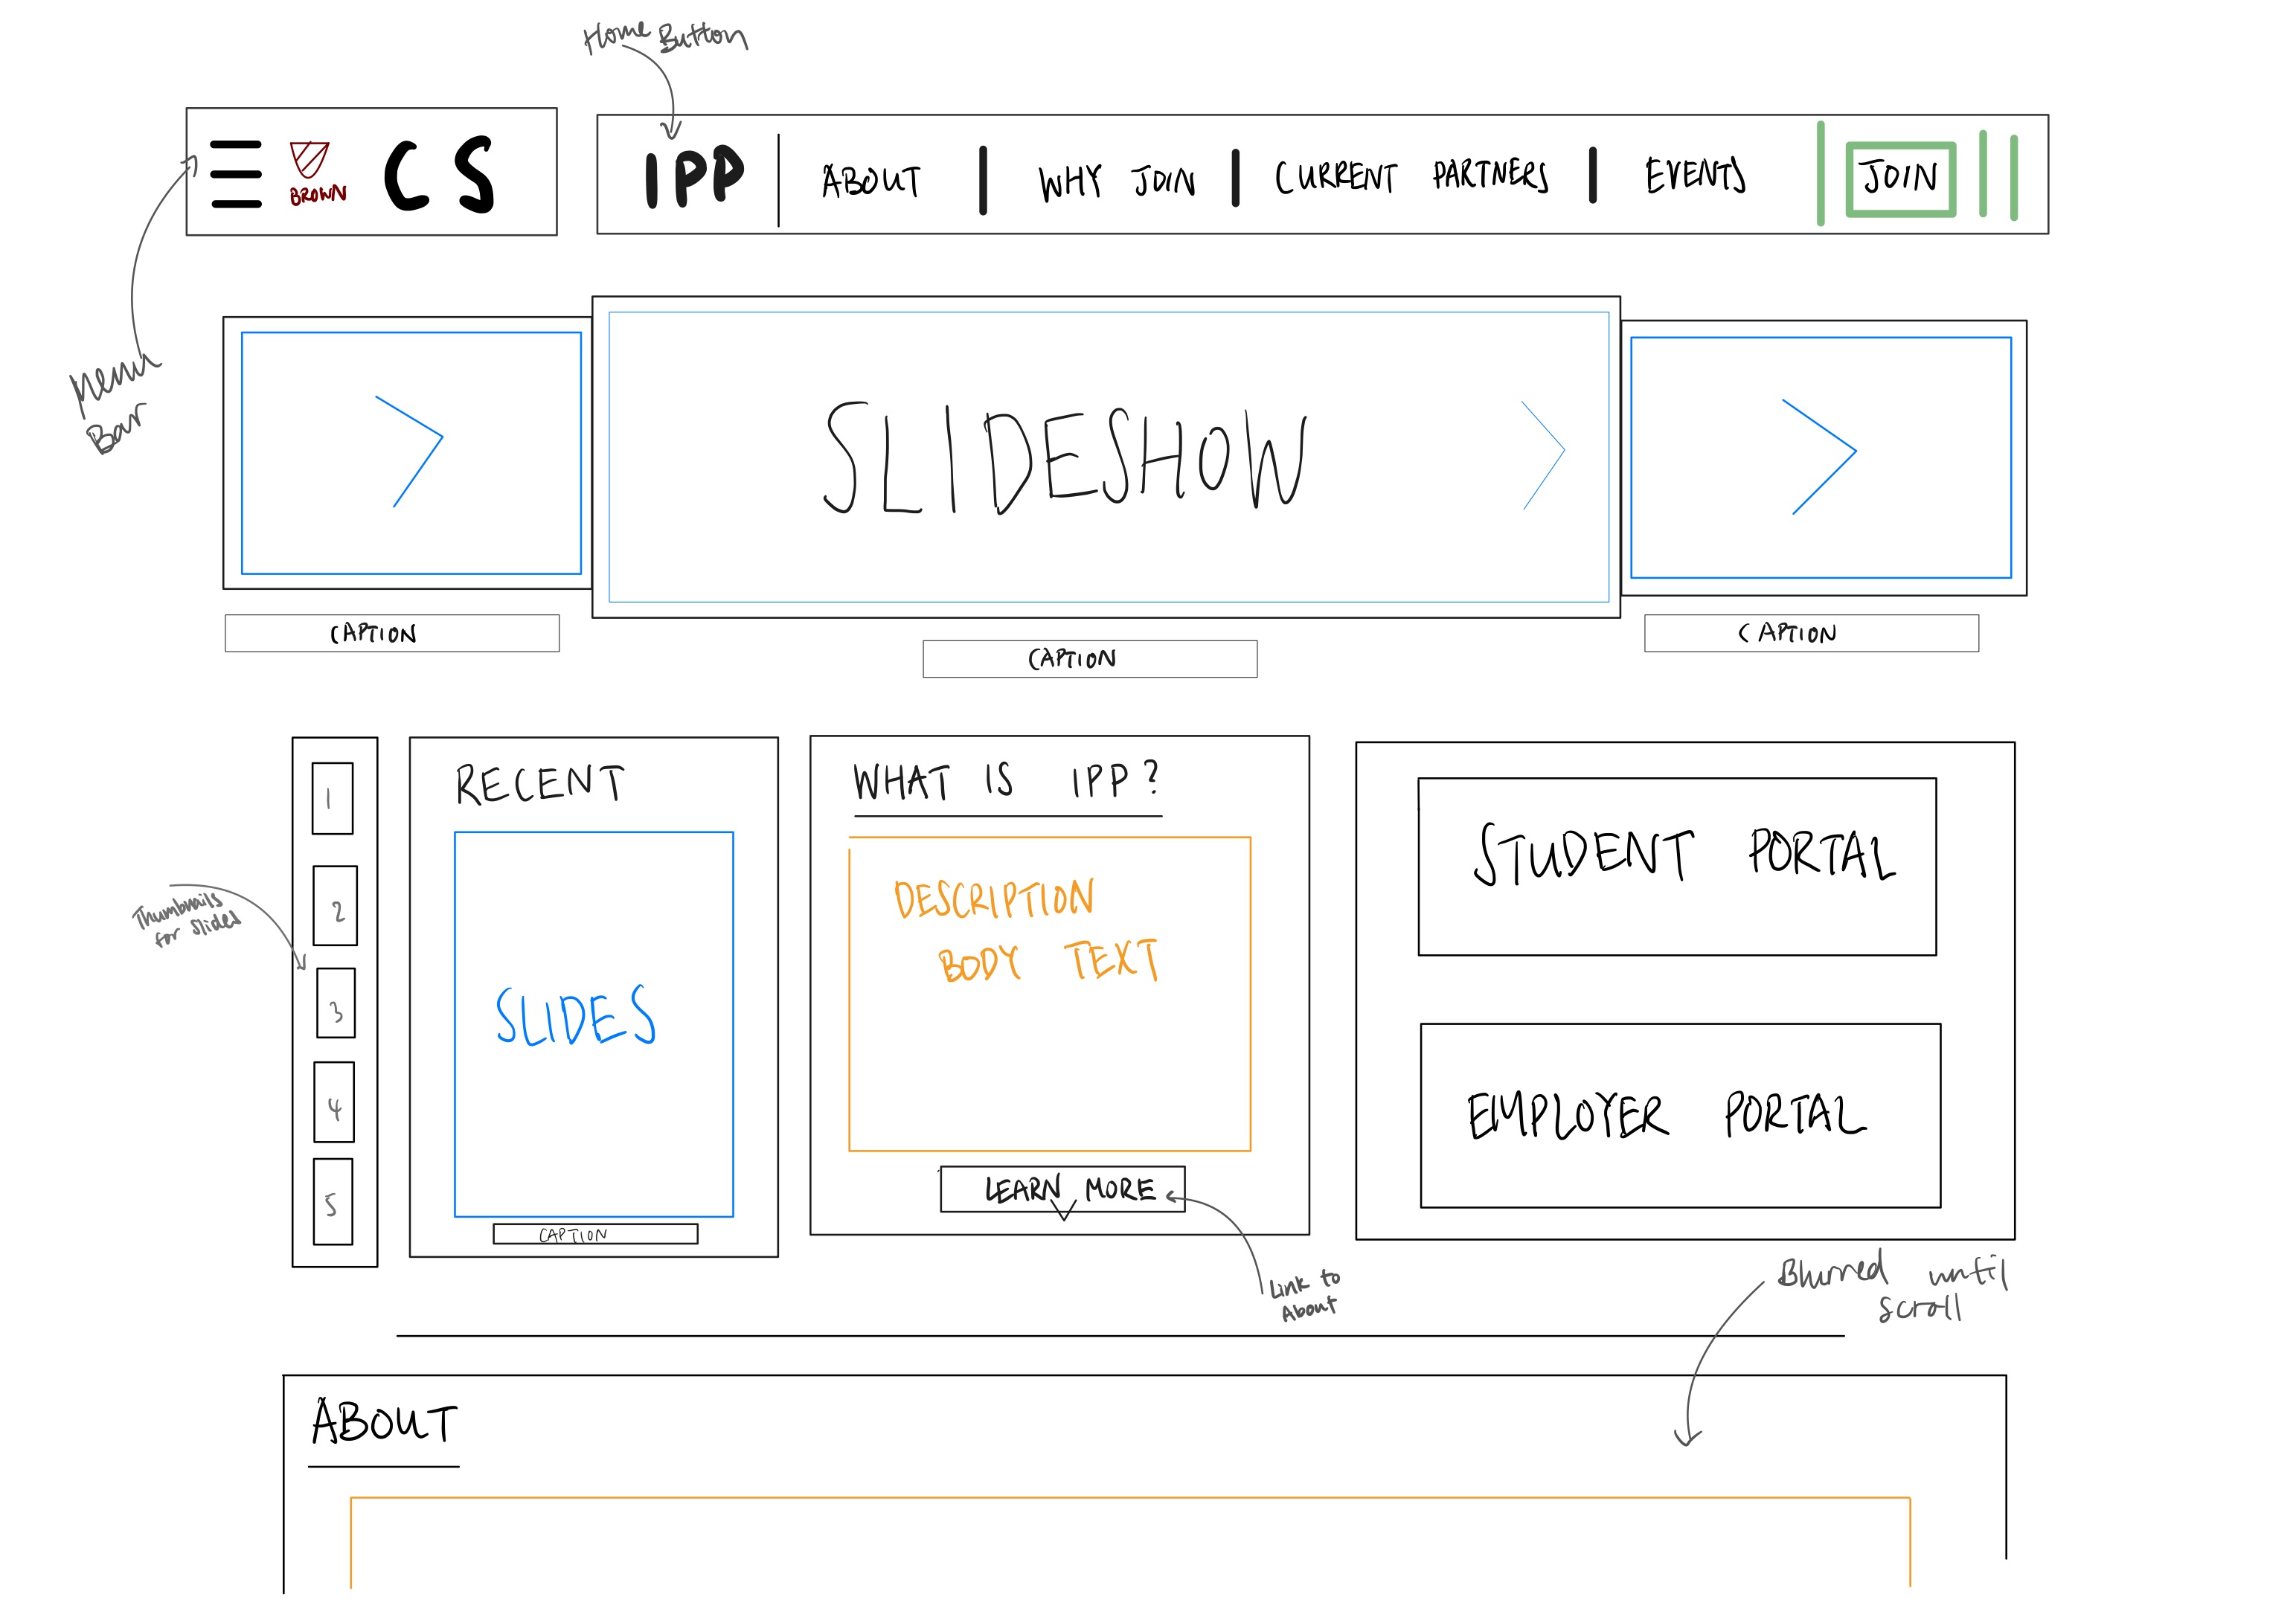 Home Button
BROWN
CS
IPP
ABOUT
WHY JOIN
CURRENT PARTNERS
EVENTS
JOIN
Menu
Bar
SLIDESHOW
CAPTION
CAPTION
CAPTION
1
2
3
4
5
Thumbnails
for slides
RECENT
SLIDES
CAPTION
WHAT IS IPP?
DESCRIPTION
BODY TEXT
LEARN MORE
Link to
About
STUDENT PORTAL
EMPLOYER PORTAL
Blurred until
scroll
ABOUT